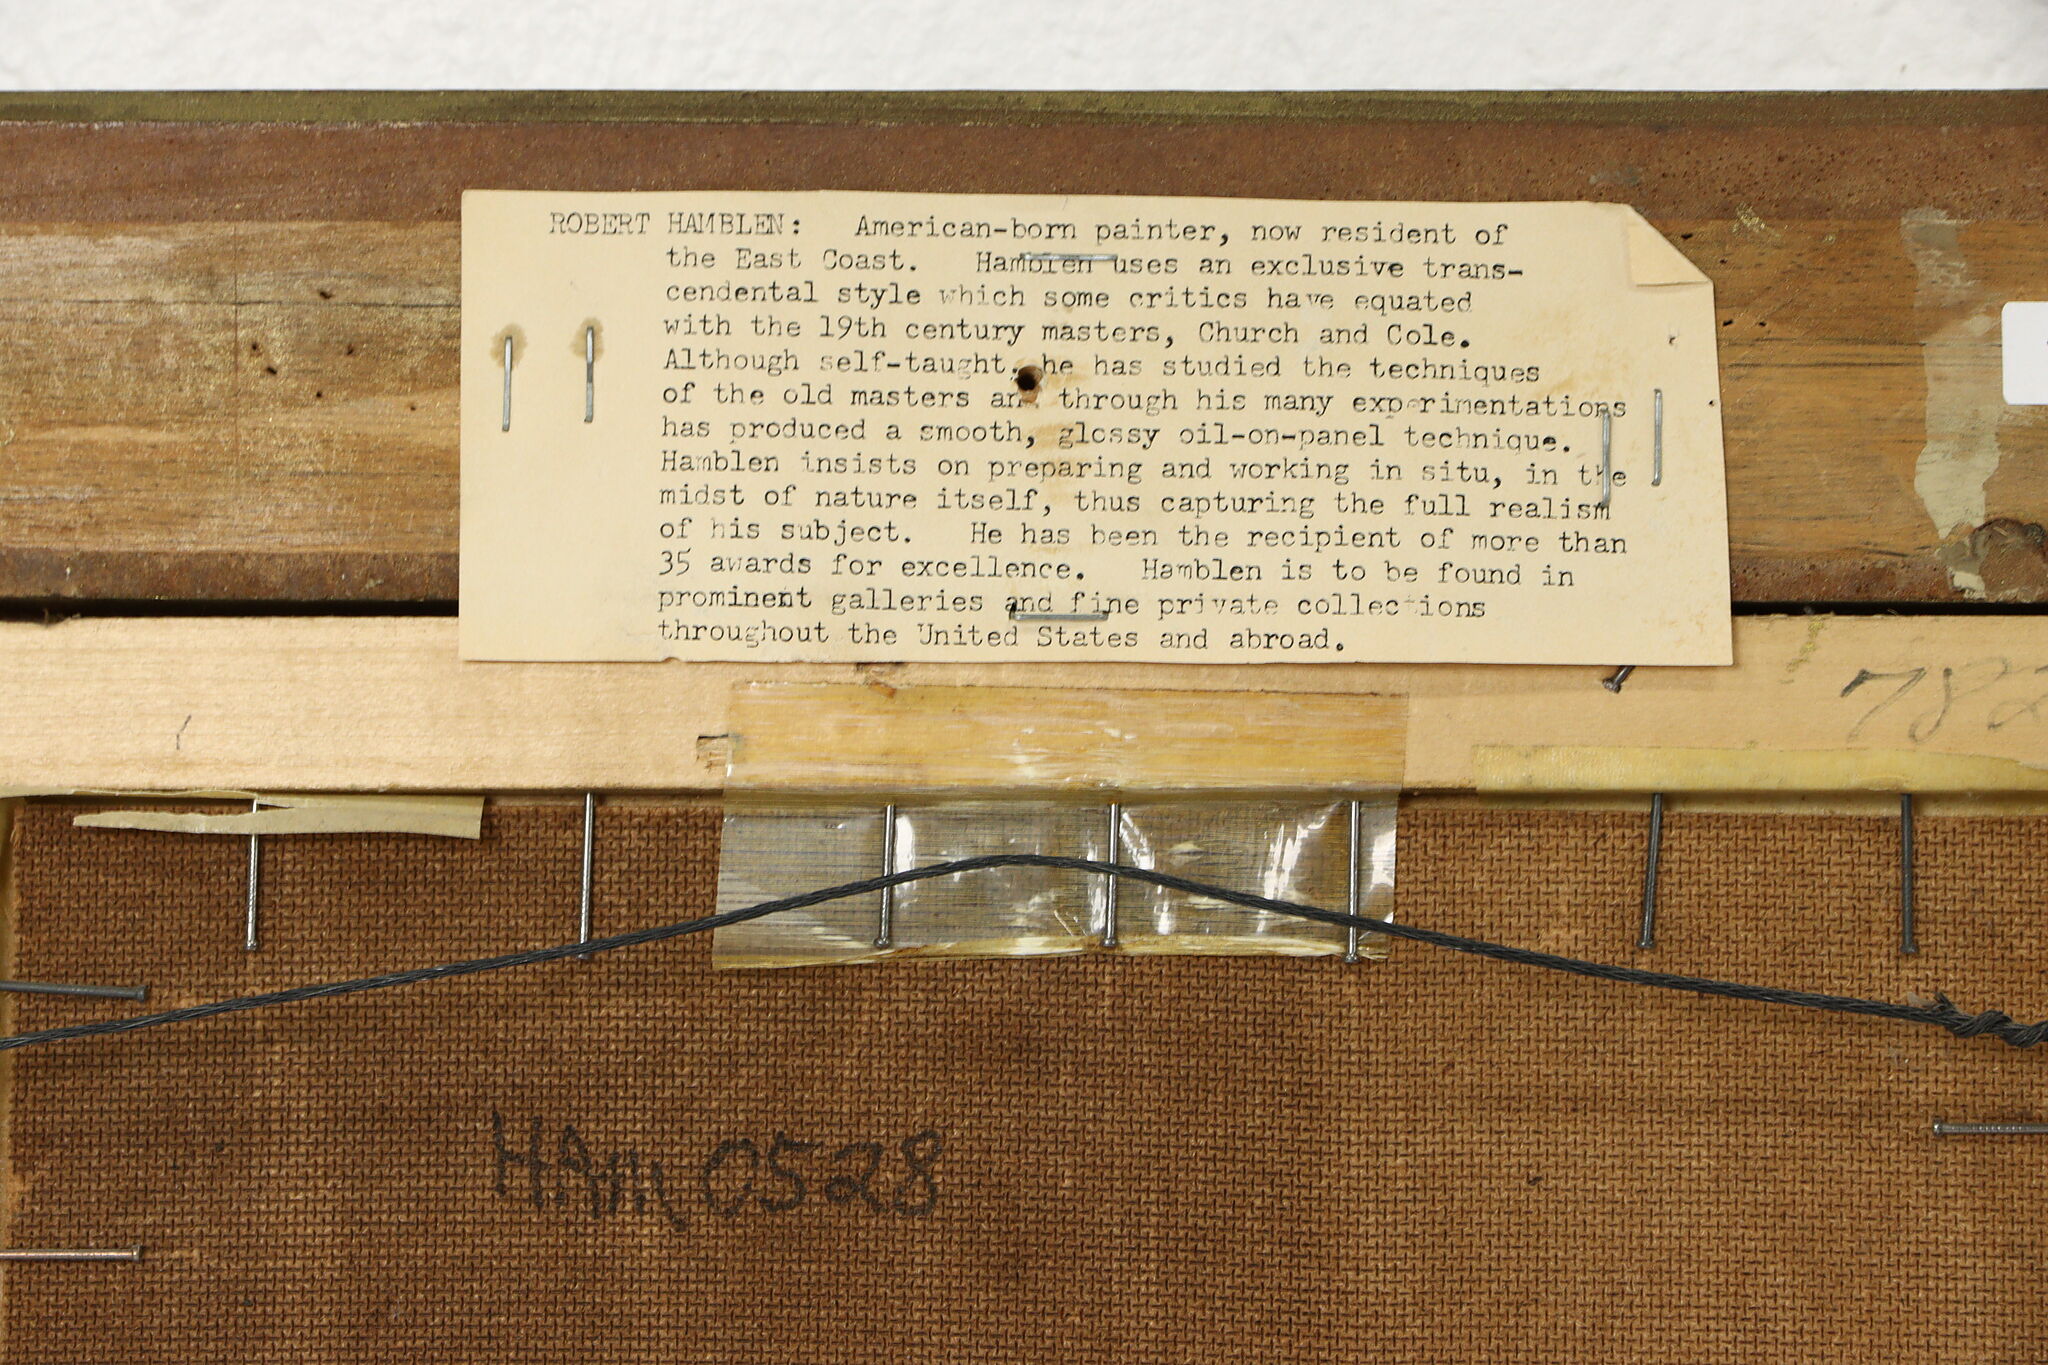 ROBERT HAMBLEN: American-born painter, now resident of
the East Coast. Hamblen uses an exclusive trans-
cendental style which some critics have equated
with the 19th century masters, Church and Cole.
Although self-taught, he has studied the techniques
of the old masters and through his many experimentations
has produced a smooth, glossy oil-on-panel technique.
Hamblen insists on preparing and working in situ, in the
midst of nature itself, thus capturing the full realism
of his subject. He has been the recipient of more than
35 awards for excellence. Hamblen is to be found in
prominent galleries and fine private collections
throughout the United States and abroad.
782
HAM 0528